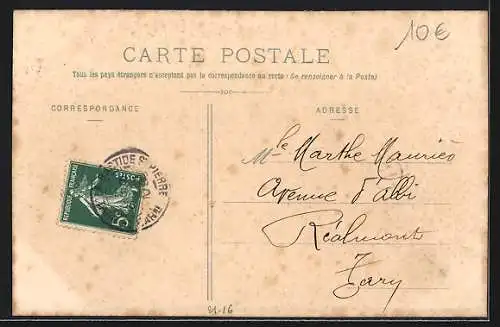 10€
CARTE POSTALE
Tous les pays étrangers n'acceptent pas la correspondance au recto (Se renseigner à la Poste)
CORRESPONDANCE
ADRESSE
BASTIDE ST PIERRE
RÉPUBLIQUE FRANÇAISE
POSTES
5
Mlle Marthe Mauriès
Avenue d'albi
Réalmont
Tarn
21-16